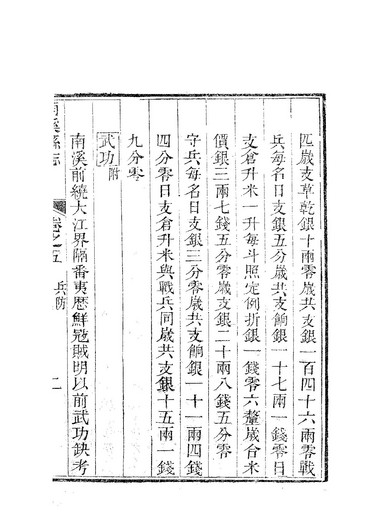 匹歲支草乾銀十兩零歲共支銀一百四十六兩零戰
兵每名日支銀五分歲共支餉銀一十七兩一錢零日
支倉升米一升每斗照定例折銀一錢零六釐歲合米
價銀三兩七錢五分零歲支銀二十兩八錢五分零
守兵每名日支銀三分零歲共支餉銀一十一兩四錢
四分零日支倉升米與戰兵同歲共支銀十五兩一錢
九分零
武功附
南溪前繞大江界隔番夷歷鮮冦賊明以前武功缺考
南溪縣志
卷之五
兵防
二